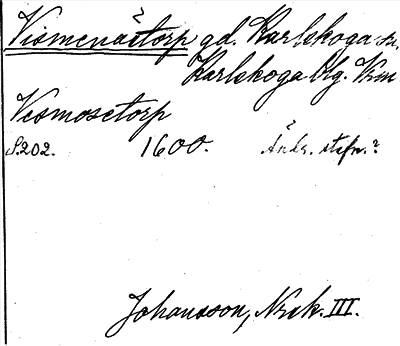 Vismenätorp gd. Karlskoga sn,
Karlskoga blg. Vrm
Vesmosetorp
S.202. 1600. Ändr. stafn.?
Johansson, Nrik. III.